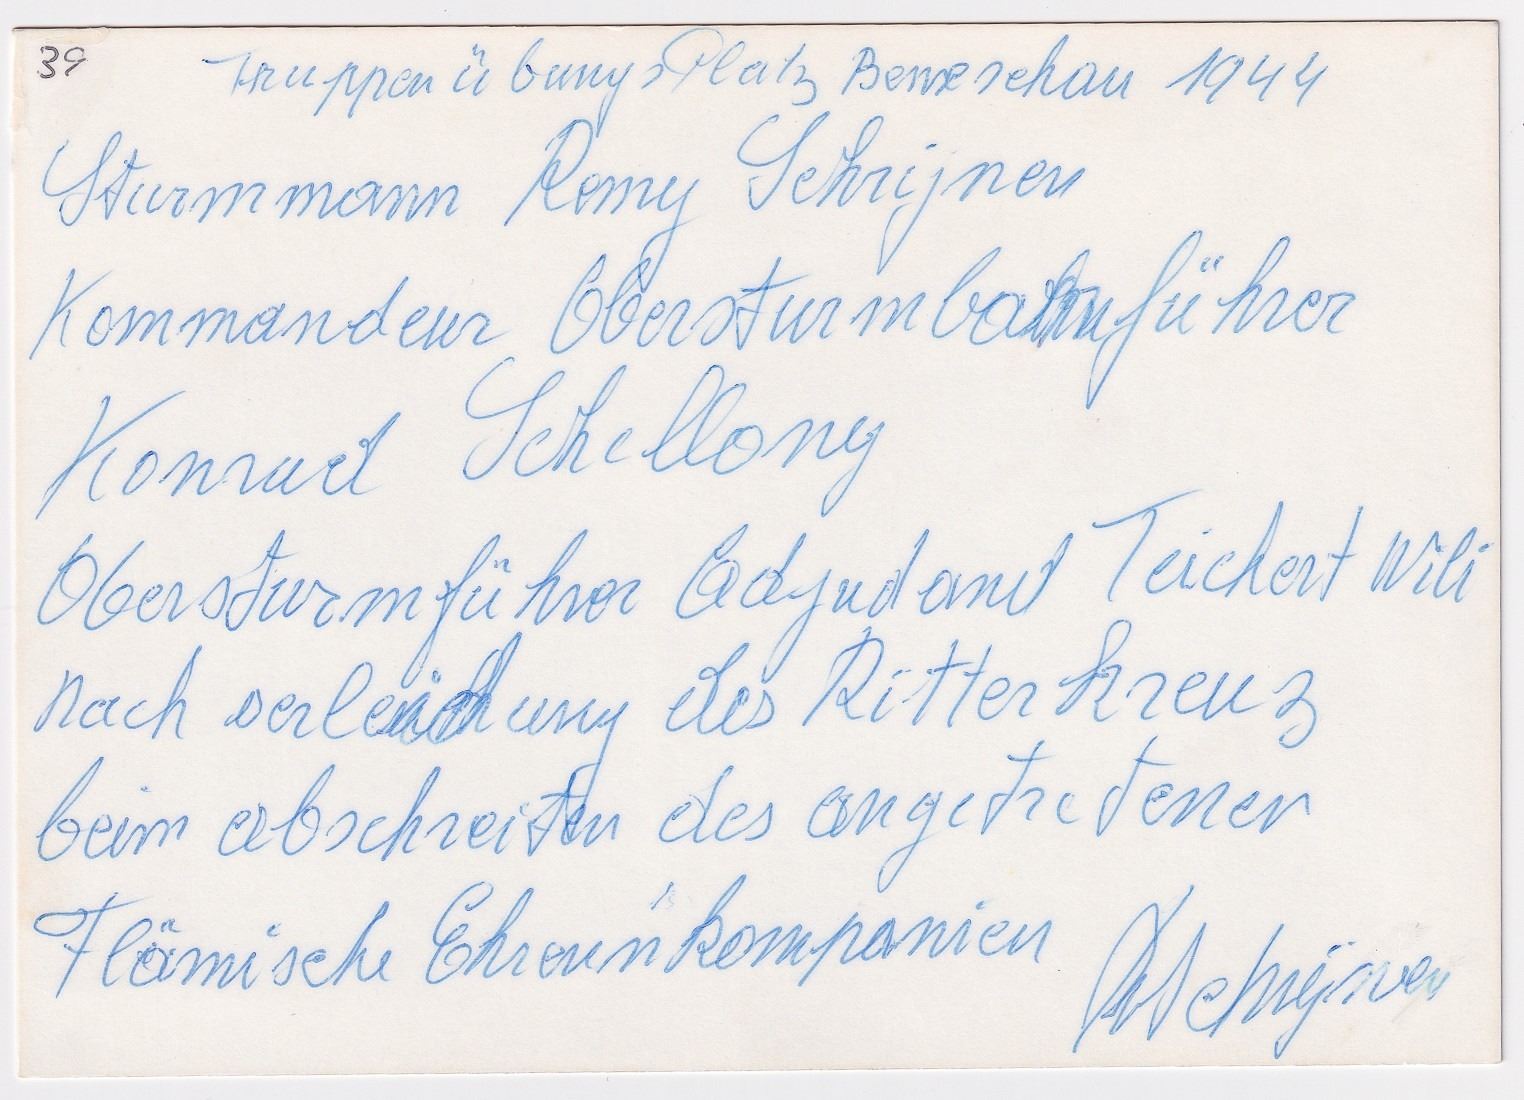 39
Truppenübungsplatz Beneschau 1944
Sturmmann Remy Schrijnen
Kommandeur Obersturmbannführer
Konrad Schellong
Obersturmführer Adjudand Teichert Wili
Nach verleichung des Ritterkreuz
beim abschreiten des angetretenen
Flämische Ehrenkompanien
R Schrijnen